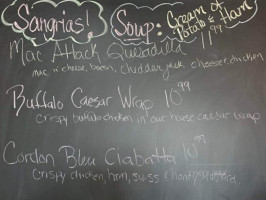 Sangrias!
Soup: Cream of
Potato & Ham
Mac Attack Quesadilla 11.99
mac n cheese, bacon, cheddar jack cheese, chicken
Buffalo Caesar Wrap 10.99
crispy buffalo chicken in our house caesar wrap
Cordon Bleu Ciabatta 10.99
Crispy chicken, ham, swiss & honey mustard